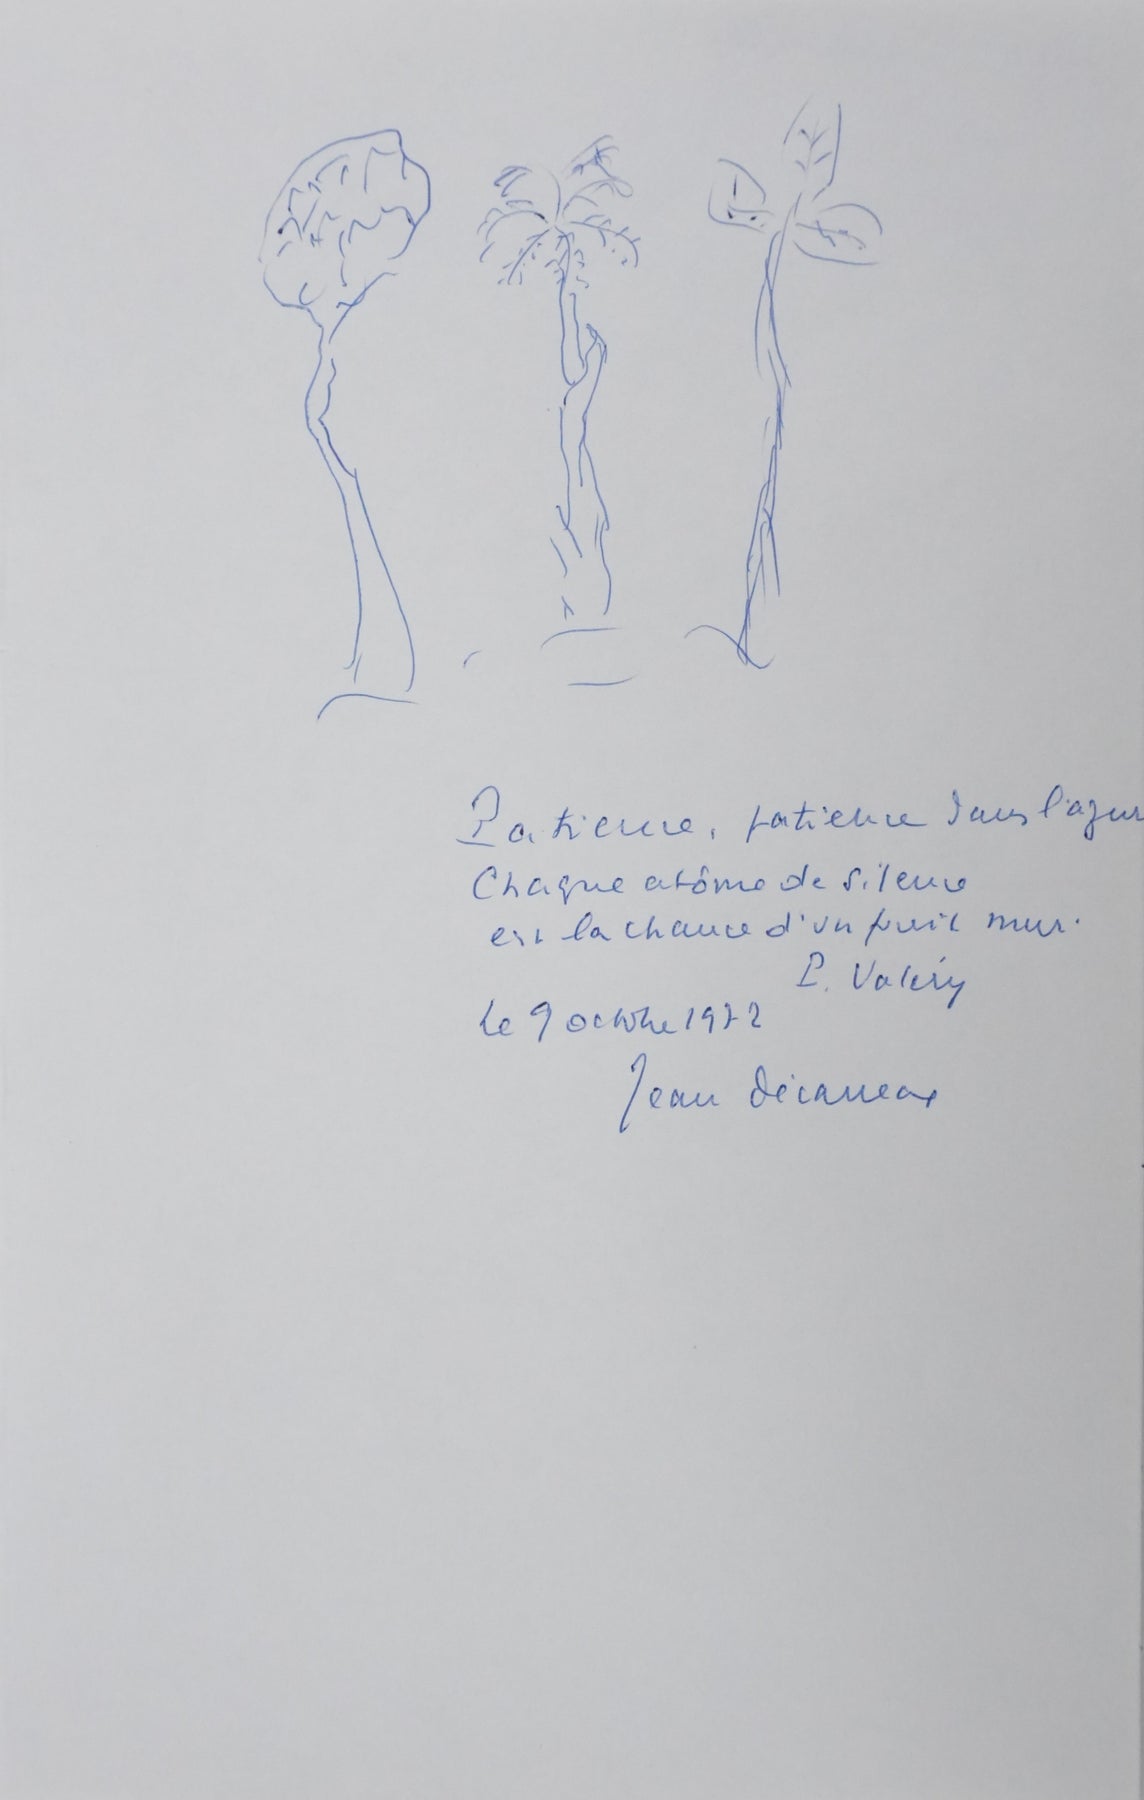 Patience, patience dans l'azur
Chaque atôme de silence
est la chance d'un fruit mur.
P. Valéry
Le 9 octobre 1972
Jean